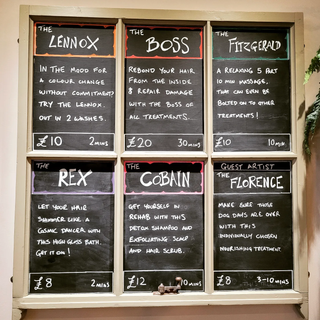 THE
LENNOX
IN THE MOOD FOR
A COLOUR CHANGE
WITHOUT COMMITMENT?
TRY THE LENNOX.
OUT IN 2 WASHES.
£10 2mins
THE
BOSS
REBOND YOUR HAIR
FROM THE INSIDE
& REPAIR DAMAGE
WITH THE BOSS OF
ALL TREATMENTS.
£20 30mins
THE
FITZGERALD
A RELAXING 5 PART
10 MIN MASSAGE.
THAT CAN EVEN BE
BOLTED ON TO OTHER
TREATMENTS!
£10 10min
THE
REX
LET YOUR HAIR
SHIMMER LIKE A
COSMIC DANCER WITH
THIS HIGH GLOSS BATH.
GET IT ON!
£8 2mins
THE
COBAIN
GET YOURSELF IN
REHAB WITH THIS
DETOX SHAMPOO AND
EXFOLIATING SCALP
AND HAIR SCRUB.
£12 10mins
GUEST ARTIST
THE
FLORENCE
MAKE SURE THOSE
DOG DAYS ARE OVER
WITH THIS
INDIVIDUALLY CHOSEN
NOURISHING TREATMENT.
£8 3-10mins